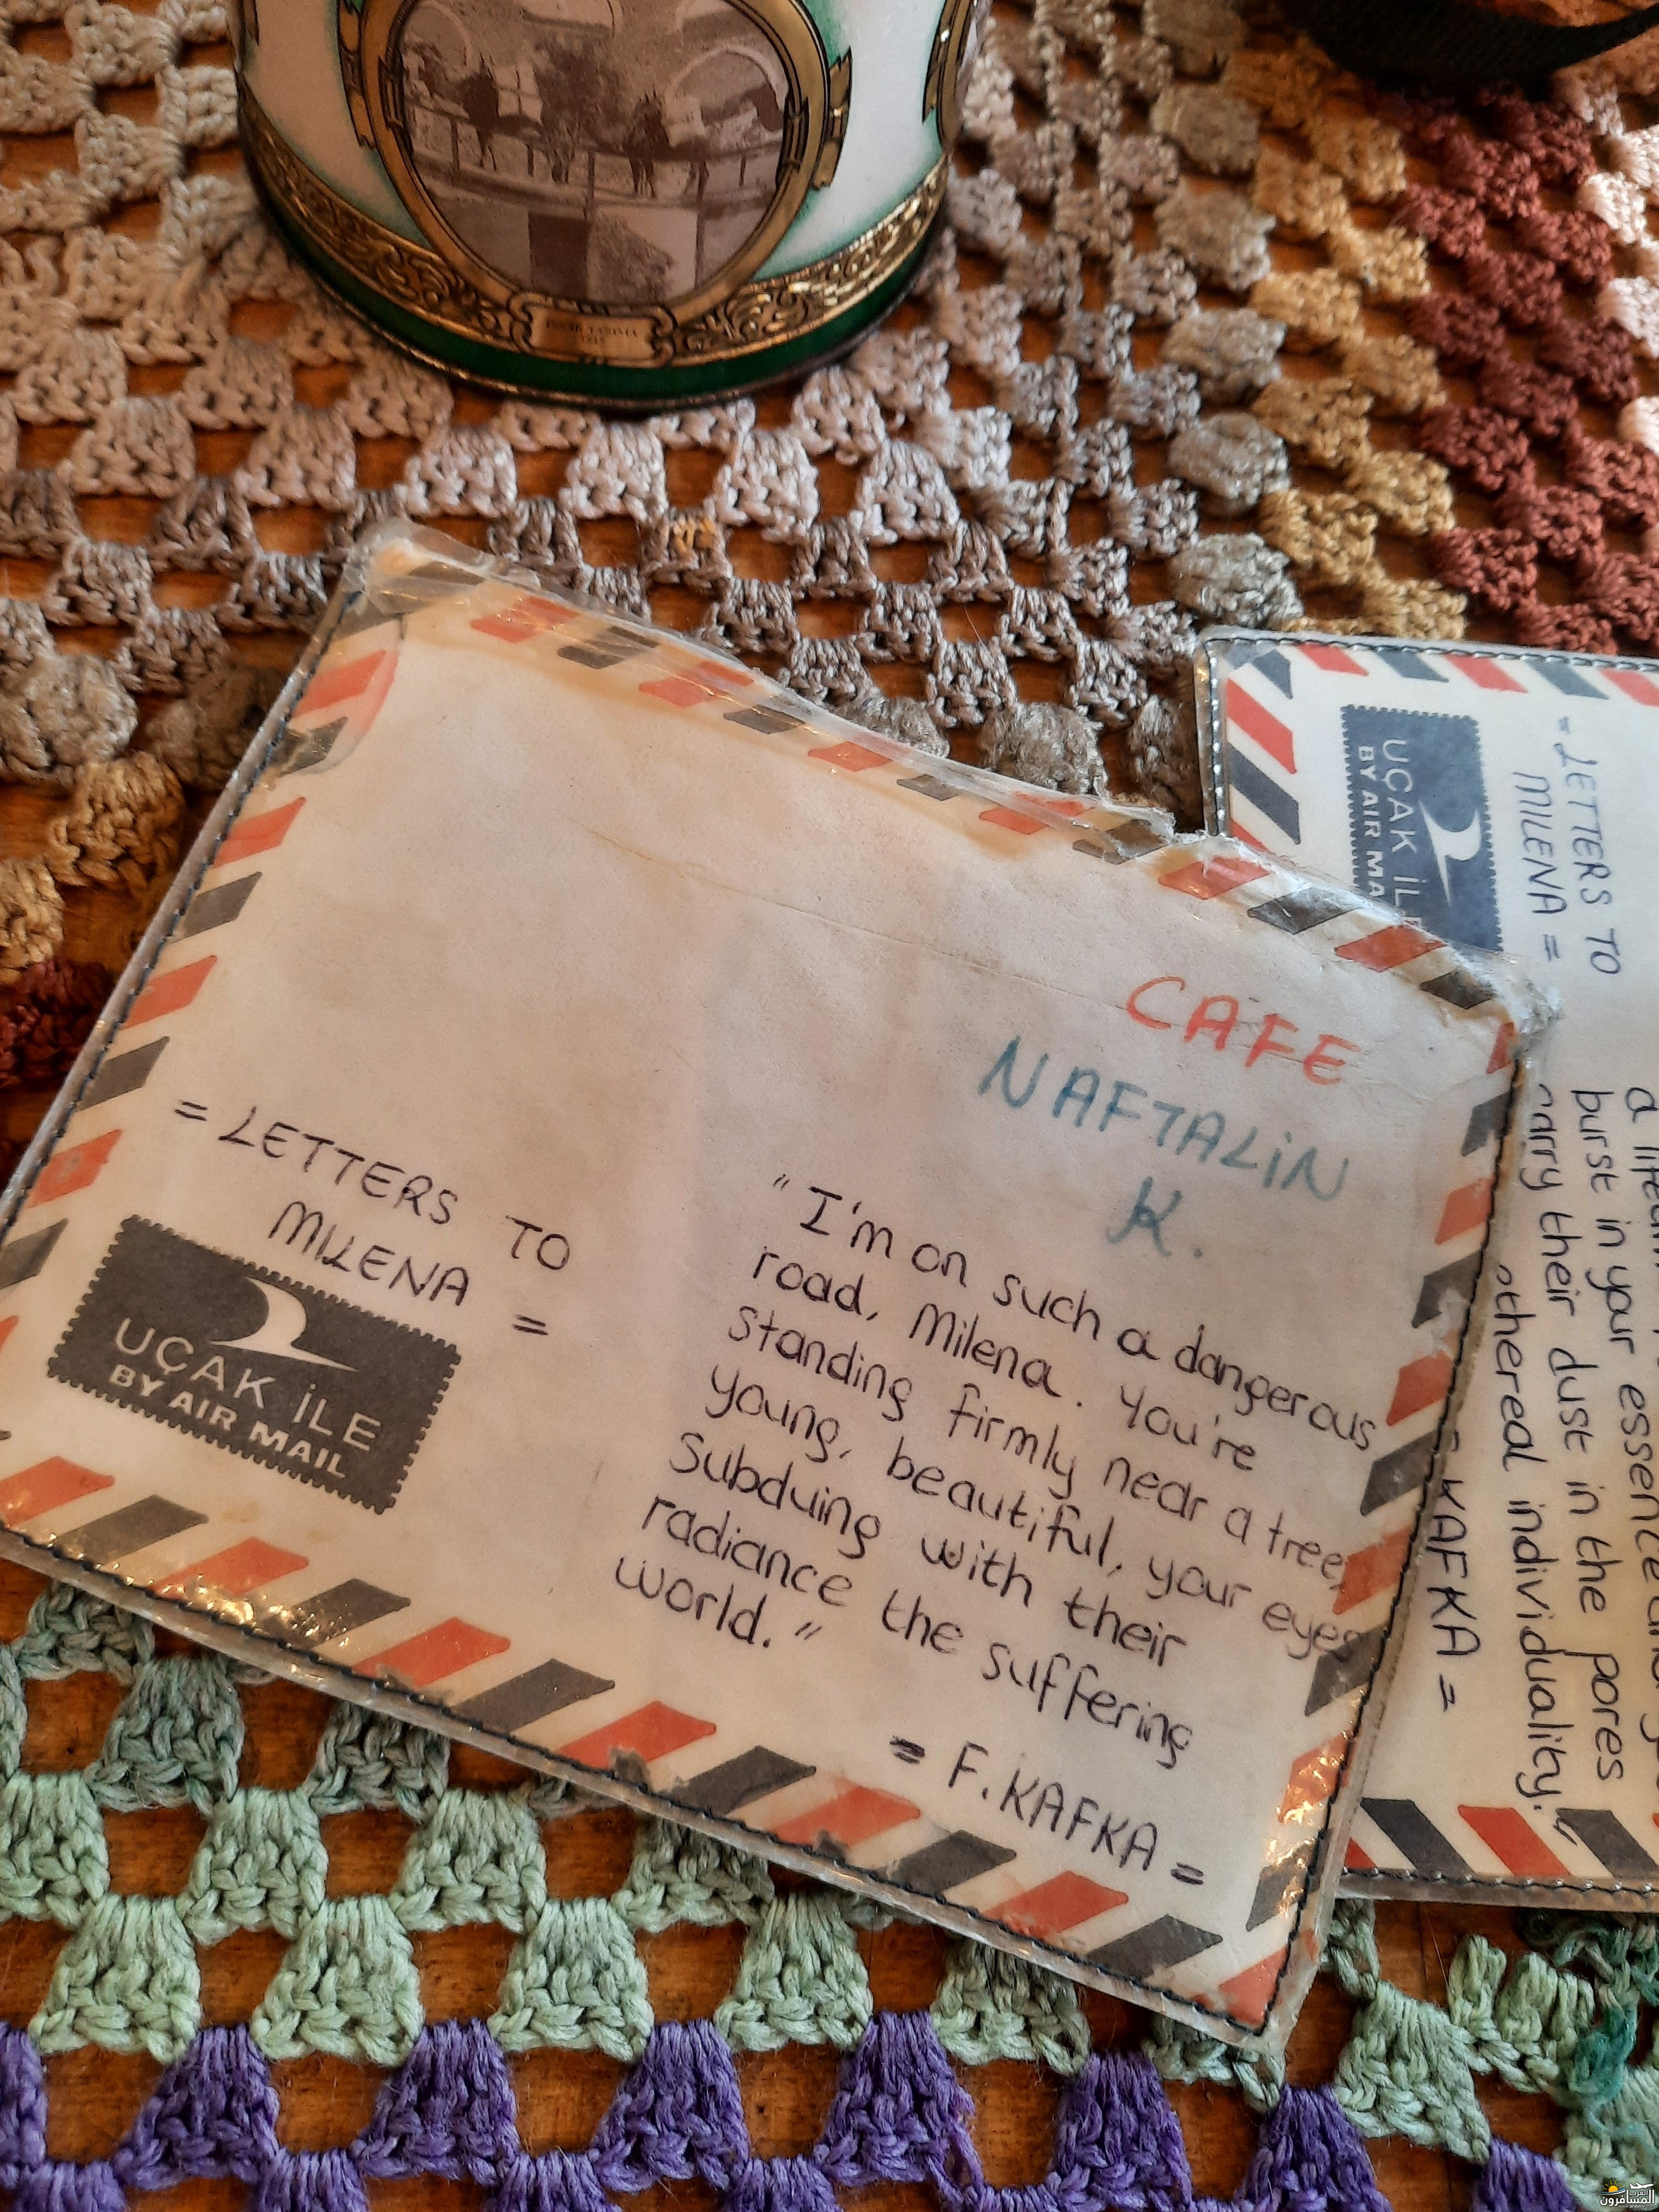 CAFE
NAFTALİN
K.
= LETTERS TO
MILENA =
UÇAK İLE
BY AIR MAIL
"I'm on such a dangerous
road, Milena. You're
standing firmly near a tree,
young, beautiful, your eyes
subduing with their
radiance the suffering
world."
= F.KAFKA =
= LETTERS TO
MILENA =
UÇAK İLE
BY AIR
burst in your essence
carry their dust in the pores
ethereal individuality."
KAFKA =
المسافرون
العرب